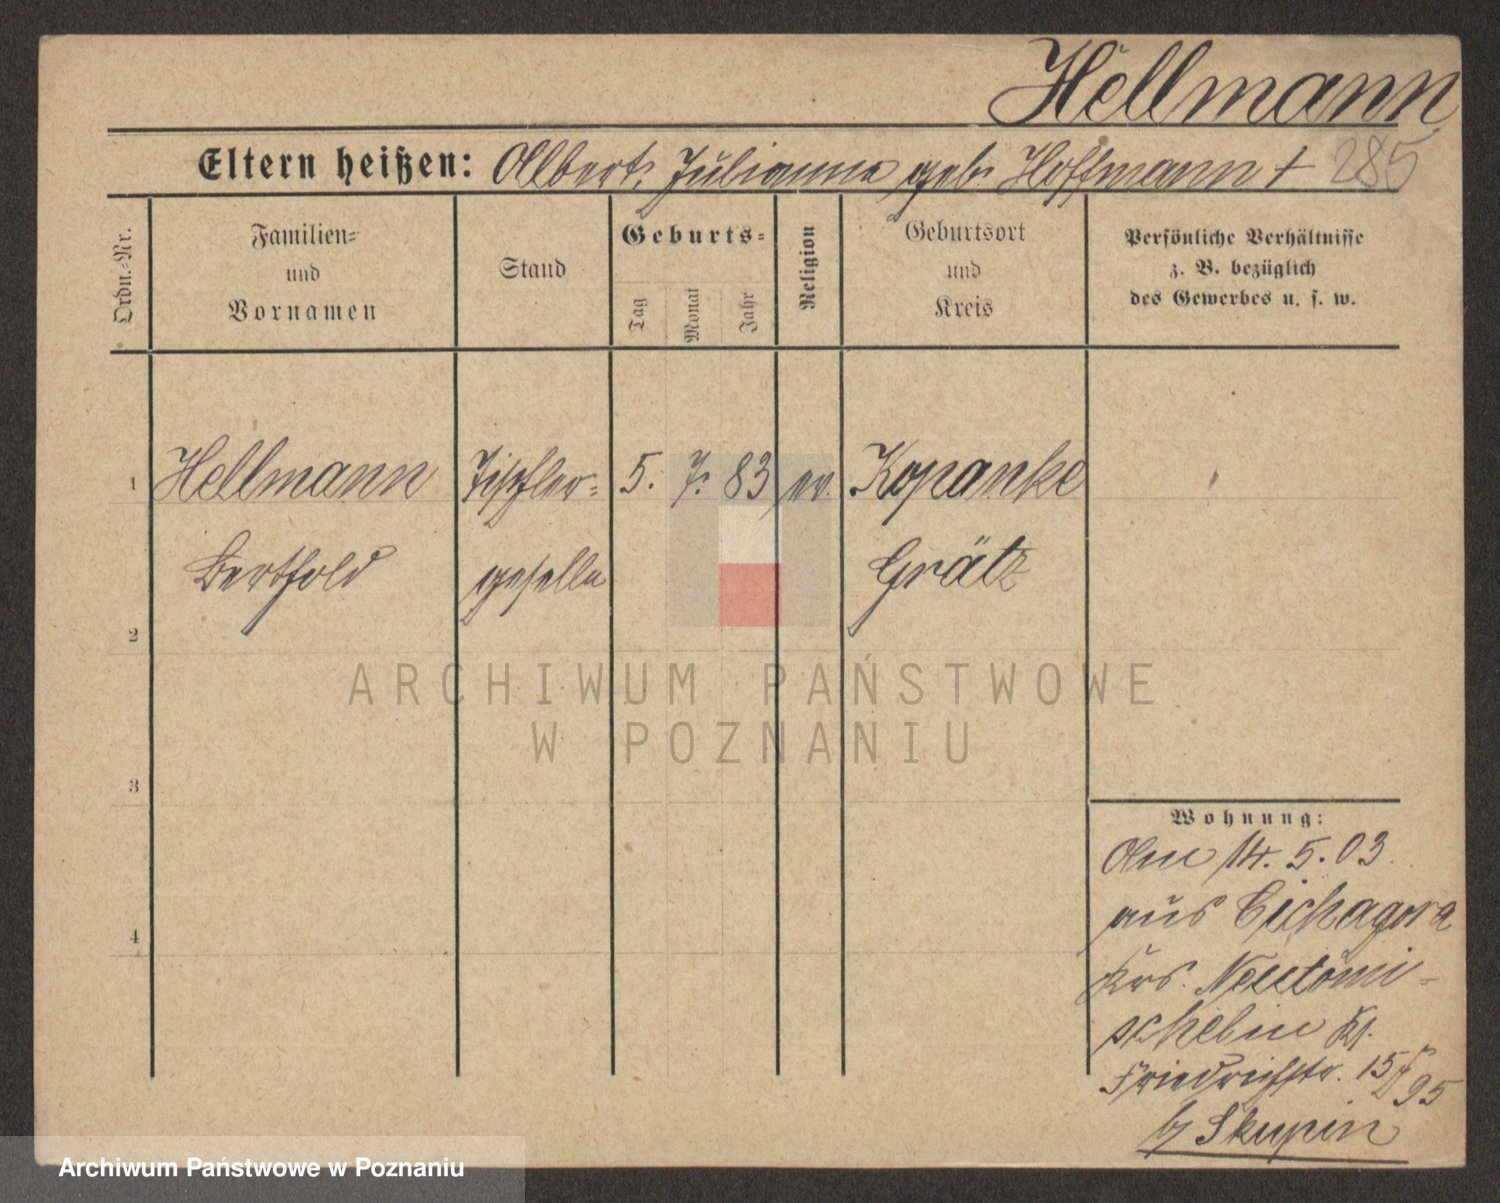 Hellmann
Eltern heißen: Albert, Julianna geb. Hoffmann † 285
Ordn.-Nr.
Familien=
und
Vornamen
Stand
Geburts=
Tag
Monat
Jahr
Religion
Geburtsort
und
Kreis
Persönliche Verhältnisse
z. B. bezüglich
des Gewerbes u. s. w.
1 Hellmann Tischler= 5. 7. 83 ev. Kopanke
Berthold geselle Grätz
2
ARCHIWUM PAŃSTWOWE
W POZNANIU
3
4
Wohnung:
Am 14. 5. 03
aus Cichagora
Krs. Neutomi-
schel in
Friedrichstr. 15
b/ Skupin
Archiwum Państwowe w Poznaniu